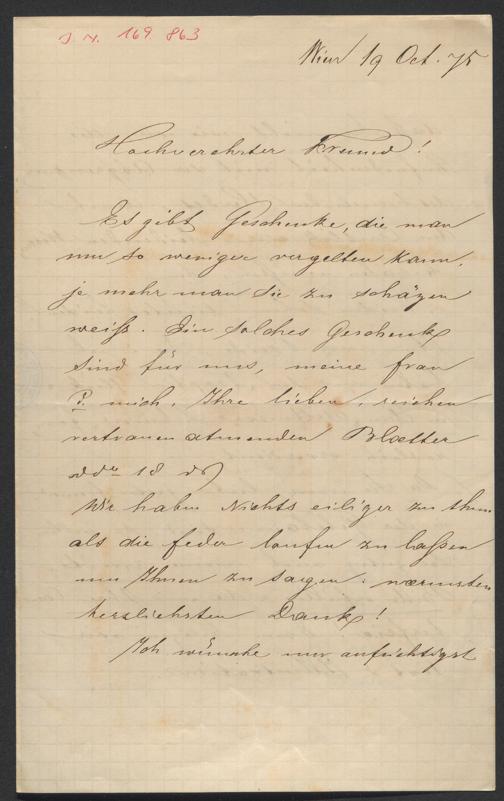 J. N. 169 863
Wien 19 Oct. 75
Hochverehrter Freund!
Es gibt Geschenke, die man
um so weniger vergelten kann,
je mehr man sie zu schäzen
weiß. Ein solches Geschenk
sind für uns, meine Frau
& mich, Ihre lieben, reichen
vertrauen atmenden Blaetter
ddo 18 d
Wir haben Nichts eiliger zu thun
als die Feder laufen zu laßen
um Ihnen zu sagen: waermsten
herzlichsten Dank!
Ich wünsche nur aufrichtigst